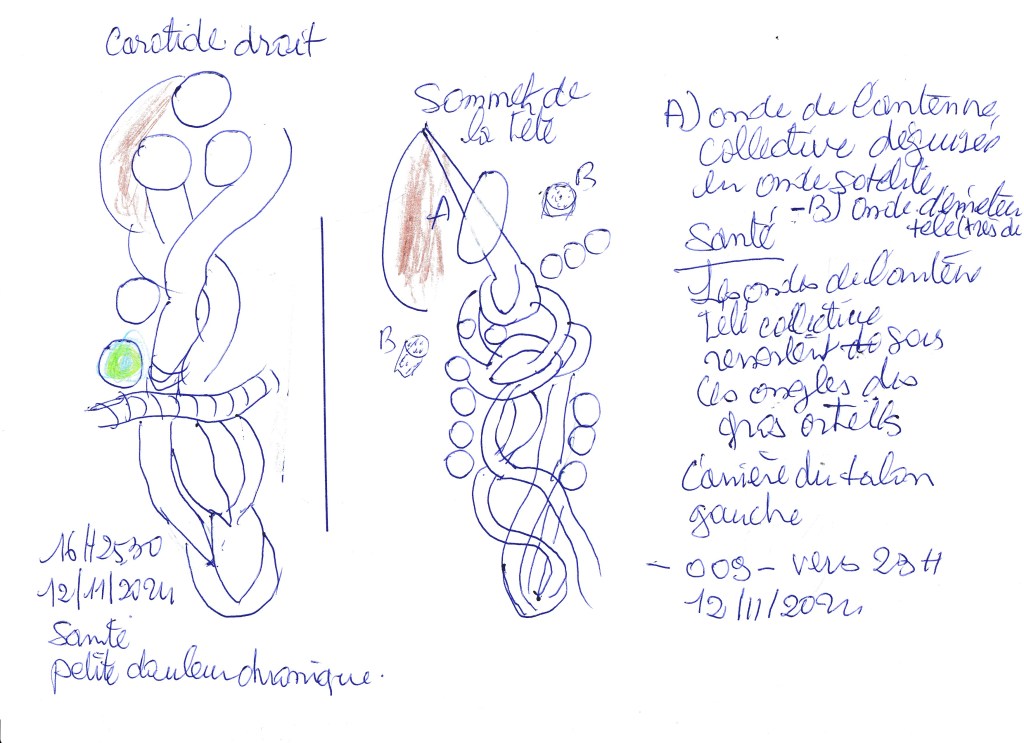 Carotide droit
16H25,30
12/11/2024
Santé
petite douleur chronique.
Sommet de
la tête
A
B
B
A) onde de l'antenne
collective déguisée
en onde satelite
-B) onde d'émeteur
Santé
Les ondes de l'antène
télé collective
ressortent sous
les ongles des
gros orteils
l'arrière du talon
gauche
- 009 - vers 23H
12/11/2024